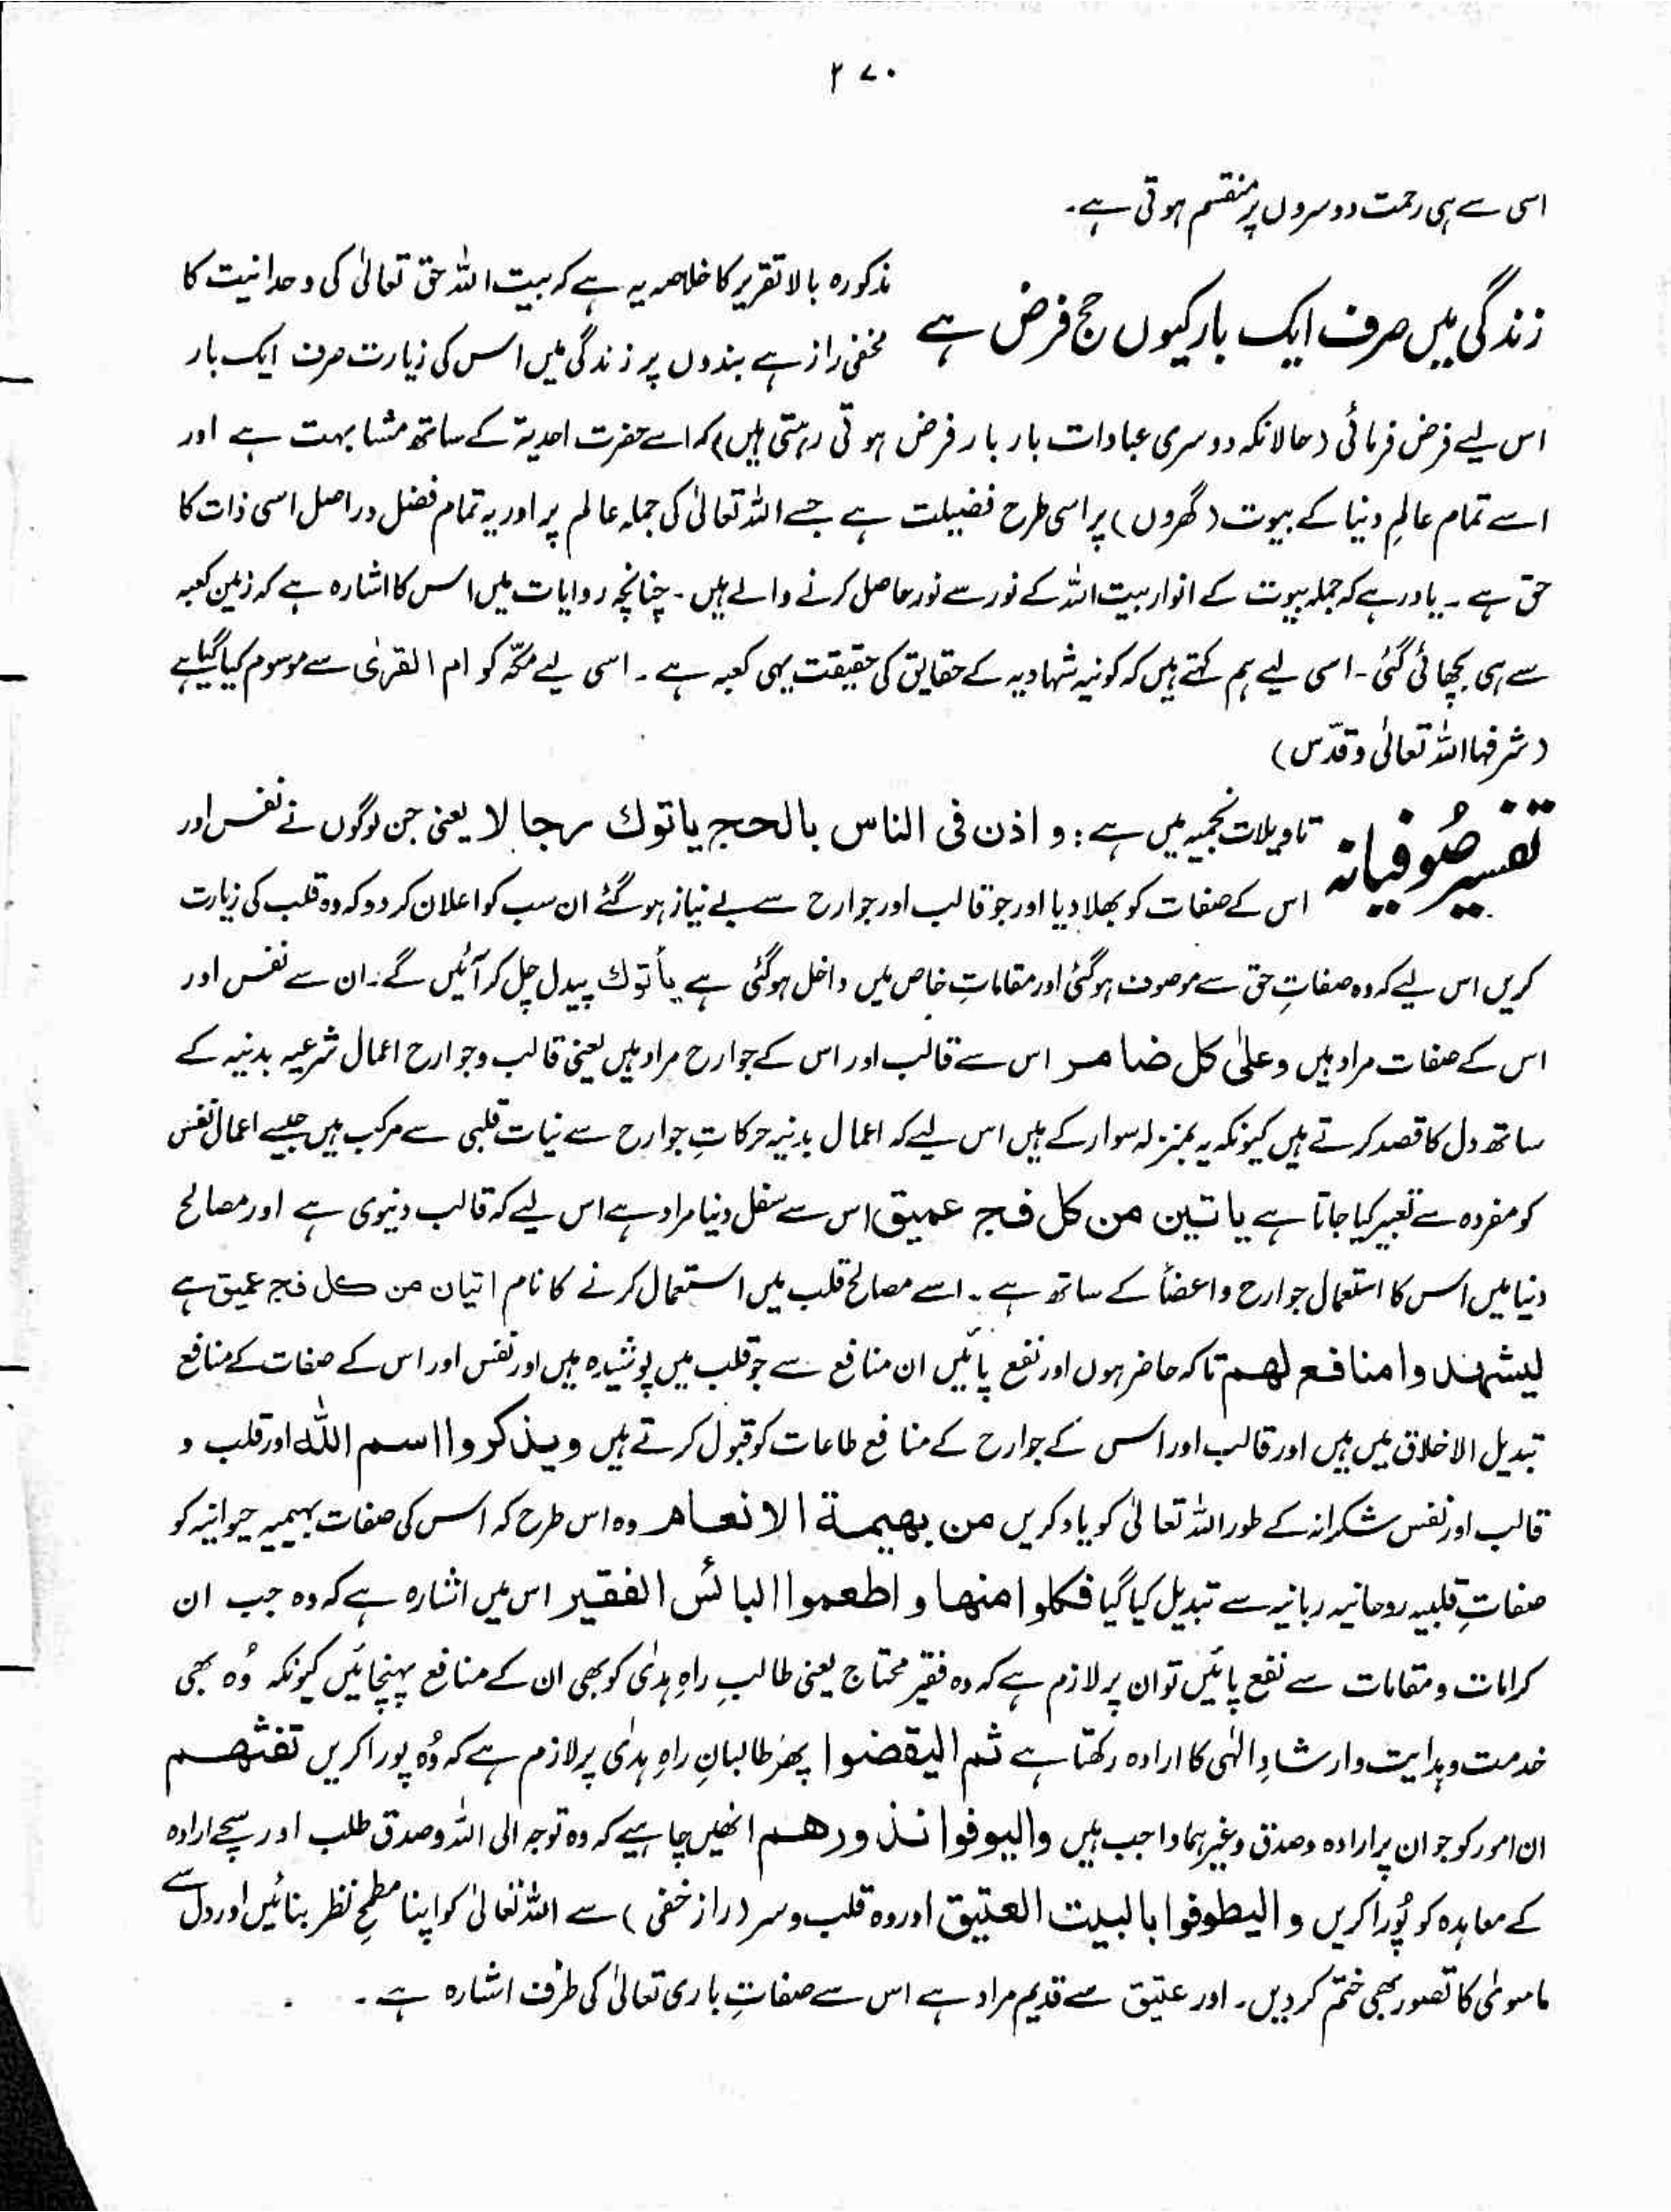 ۲۷۰
اسی سے ہی رحمت دوسروں پر منقسم ہوتی ہے۔
زندگی میں صرف ایک بار کیوں حج فرض ہے
مذکورہ بالا تقریر کا خلاصہ یہ ہے کہ بیت اللہ حق تعالیٰ کی وحدانیت کا
مخفی راز ہے بندوں پر زندگی میں اس کی زیارت صرف ایک بار
اس لیے فرض فرمائی (حالانکہ دوسری عبادات بار بار فرض ہوتی رہتی ہیں) کہ اسے حضرت احدیۃ کے ساتھ مشابہت ہے اور
اسے تمام عالمِ دنیا کے بیوت (گھروں) پر اسی طرح فضیلت ہے جسے اللہ تعالیٰ کی جملہ عالم پر اور یہ تمام فضل دراصل اسی ذات کا
حق ہے ۔ یاد رہے کہ جملہ بیوت کے انوار بیت اللہ کے نور سے نور حاصل کرنے والے ہیں ۔ چنانچہ روایات میں اس کا اشارہ ہے کہ زمین کعبہ
سے ہی بچھائی گئی ۔ اسی لیے ہم کہتے ہیں کہ کونیہ شہادیہ کے حقایق کی حقیقت یہی کعبہ ہے ۔ اسی لیے مکہّ کو ام القریٰ سے موسوم کیا گیا ہے
(شرفہا اللہ تعالیٰ وقدّس)
تفسیر صُوفیانہ
تاویلات نجمیہ میں ہے : و اذن فی الناس بالحج یاتوك رجالا یعنی جن لوگوں نے نفس اور
اس کے صفات کو بھلا دیا اور جو قالب اور جوارح سے بے نیاز ہو گئے ان سب کو اعلان کر دو کہ وہ قلب کی زیارت
کریں اس لیے کہ وہ صفاتِ حق سے موصوف ہو گئی اور مقاماتِ خاص میں داخل ہو گئی ہے یأتوك پیدل چل کر آئیں گے ۔ ان سے نفس اور
اس کے صفات مراد ہیں وعلیٰ کل ضامر اس سے قالب اور اس کے جوارح مراد ہیں یعنی قالب و جوارح اعمال شرعیہ بدنیہ کے
ساتھ دل کا قصد کرتے ہیں کیونکہ یہ بمنزلہ سوار کے ہیں اس لیے کہ اعمال بدنیہ حرکاتِ جوارح سے نیات قلبی سے مرکب ہیں جیسے اعمال نفس
کو مفردہ سے تعبیر کیا جاتا ہے یاتین من کل فج عمیق اس سے سفل دنیا مراد ہے اس لیے کہ قالب دنیوی ہے اور مصالح
دنیا میں اس کا استعمال جوارح و اعضأ کے ساتھ ہے ۔ اسے مصالح قلب میں استعمال کرنے کا نام اتیان من کل فج عمیق ہے
لیشہدوا منافع لهم تاکہ حاضر ہوں اور نفع پائیں ان منافع سے جو قلب میں پوشیدہ ہیں اور نفس اور اس کے صفات کے منافع
تبدیل الاخلاق میں ہیں اور قالب اور اس کے جوارح کے منافع طاعات کو قبول کرتے ہیں ویذکروا اسم اللّٰہ اور قلب و
قالب اور نفس شکرانہ کے طور اللہ تعالیٰ کو یاد کریں من بهیمة الانعام وہ اس طرح کہ اس کی صفات بہیمیہ حیوانیہ کو
صفاتِ قلبیہ روحانیہ ربانیہ سے تبدیل کیا گیا فکلوا منها و اطعموا البائس الفقیر اس میں اشارہ ہے کہ وہ جب ان
کرامات و مقامات سے نفع پائیں تو ان پر لازم ہے کہ وہ فقیر محتاج یعنی طالبِ راہِ ہدٰی کو بھی ان کے منافع پہنچائیں کیونکہ وُہ بھی
خدمت و ہدایت و ارشادِ الٰہی کا ارادہ رکھتا ہے ثم الیقضوا پھر طالبانِ راہِ ہدٰی پر لازم ہے کہ وُہ پورا کریں تفثهم
ان امور کو جو ان پر ارادہ و صدق وغیرہما واجب ہیں والیوفوا نذورهم انھیں چاہیے کہ وہ توجہ الی اللہ و صدق طلب اور سچے ارادہ
کے معاہدہ کو پُورا کریں و الیطوفوا بالبیت العتیق اور وہ قلب و سر (راز خفی) سے اللہ تعالیٰ کو اپنا مطمحِ نظر بنائیں اور دل سے
ماسویٰ کا تصور بھی ختم کر دیں ۔ اور عتیق سے قدیم مراد ہے اس سے صفاتِ باری تعالیٰ کی طرف اشارہ ہے ۔